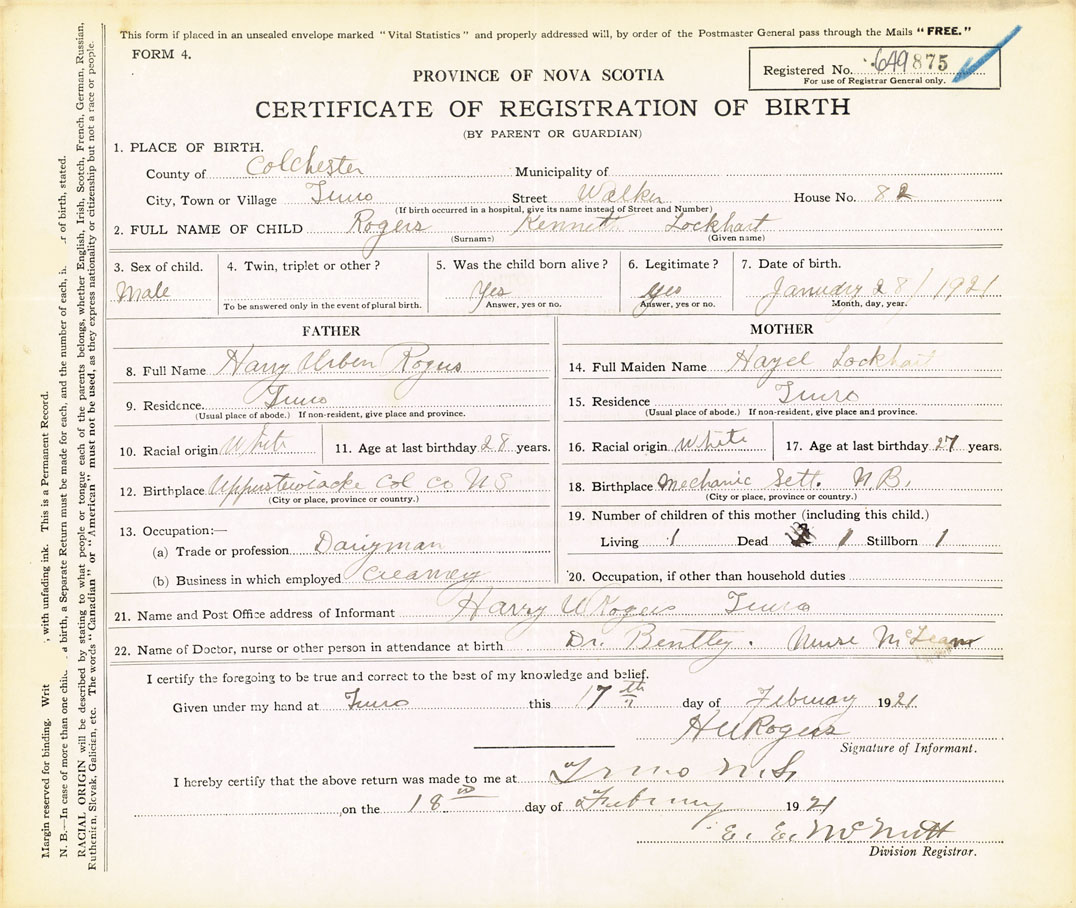 This form if placed in an unsealed envelope marked "Vital Statistics" and properly addressed will, by order of the Postmaster General pass through the Mails "FREE."
FORM 4.
Registered No. 649875
For use of Registrar General only.
PROVINCE OF NOVA SCOTIA
CERTIFICATE OF REGISTRATION OF BIRTH
(BY PARENT OR GUARDIAN)
1. PLACE OF BIRTH.
County of Colchester Municipality of
City, Town or Village Truro Street Walker House No. 82
(If birth occurred in a hospital, give its name instead of Street and Number)
2. FULL NAME OF CHILD Rogers Kenneth Lockhart
(Surname) (Given name)
3. Sex of child. 4. Twin, triplet or other? 5. Was the child born alive? 6. Legitimate? 7. Date of birth.
Male Yes Yes January 28/1921
To be answered only in the event of plural birth. Answer, yes or no. Answer, yes or no. Month, day, year.
FATHER
8. Full Name Harry Urben Rogers
9. Residence. Truro
(Usual place of abode.) If non-resident, give place and province.
10. Racial origin White 11. Age at last birthday 28 years.
12. Birthplace Upperstewiacke Col Co NS
(City or place, province or country.)
13. Occupation:—
(a) Trade or profession Dairyman
(b) Business in which employed Creamery
MOTHER
14. Full Maiden Name Hazel Lockhart
15. Residence Truro
(Usual place of abode.) If non-resident, give place and province.
16. Racial origin White 17. Age at last birthday 27 years.
18. Birthplace Mechanic Sett. N.B.
(City or place, province or country.)
19. Number of children of this mother (including this child.)
Living 1 Dead 1 Stillborn 1
20. Occupation, if other than household duties
21. Name and Post Office address of Informant Harry U Rogers Truro
22. Name of Doctor, nurse or other person in attendance at birth Dr. Bentley. Nurse McLean
I certify the foregoing to be true and correct to the best of my knowledge and belief.
Given under my hand at Truro this 17th day of February 1921
H U Rogers
Signature of Informant.
I hereby certify that the above return was made to me at Truro N.S.
on the 18 day of February 1921
E. E. McNutt
Division Registrar.
Margin reserved for binding. Writ , with unfading ink. This is a Permanent Record.
N. B.—In case of more than one chil a birth, a Separate Return must be made for each, and the number of each, i. r of birth, stated.
RACIAL ORIGIN will be described by stating to what people or tongue each of the parents belongs, whether English, Irish, Scotch, French, German, Russian,
Ruthenian, Slovak, Galician, etc. The words "Canadian" or "American" must not be used, as they express nationality or citizenship but not a race or people.